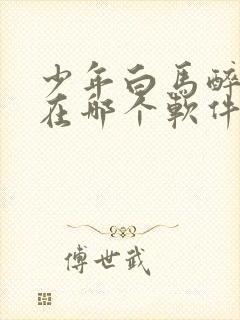 少年白馬醉
在那个軟件
傅世武